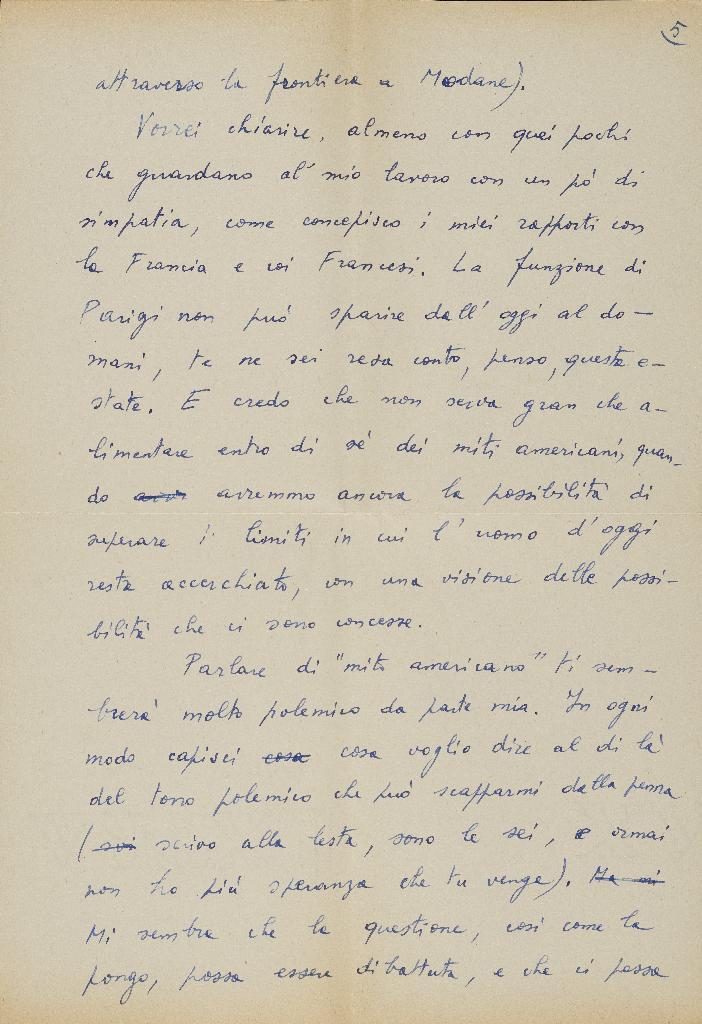 5
attraverso la frontiera a Modane).
Vorrei chiarire, almeno con quei pochi
che guardano al mio lavoro con un pò di
simpatia, come concepisco i miei rapporti con
la Francia e coi Francesi. La funzione di
Parigi non può sparire dall' oggi al do-
mani, te ne sei reso conto, penso, questa e-
state. E credo che non serva gran che a-
limentare entro di sé dei miti americani, quan-
do avremmo ancora la possibilità di
superare i limiti in cui l' uomo d' oggi
resta accerchiato, con una visione delle possi-
bilità che ci sono concesse.
Parlare di "mito americano" ti sem-
brerà molto polemico da parte mia. In ogni
modo capisci cosa cosa voglio dire al di là
del tono polemico che può scapparmi dalla penna
( scrivo alla lesta, sono le sei, e ormai
non ho più speranza che tu venga). Ma mi
Mi sembra che la questione, così come la
pongo, possa essere dibattuta, e che ci possa